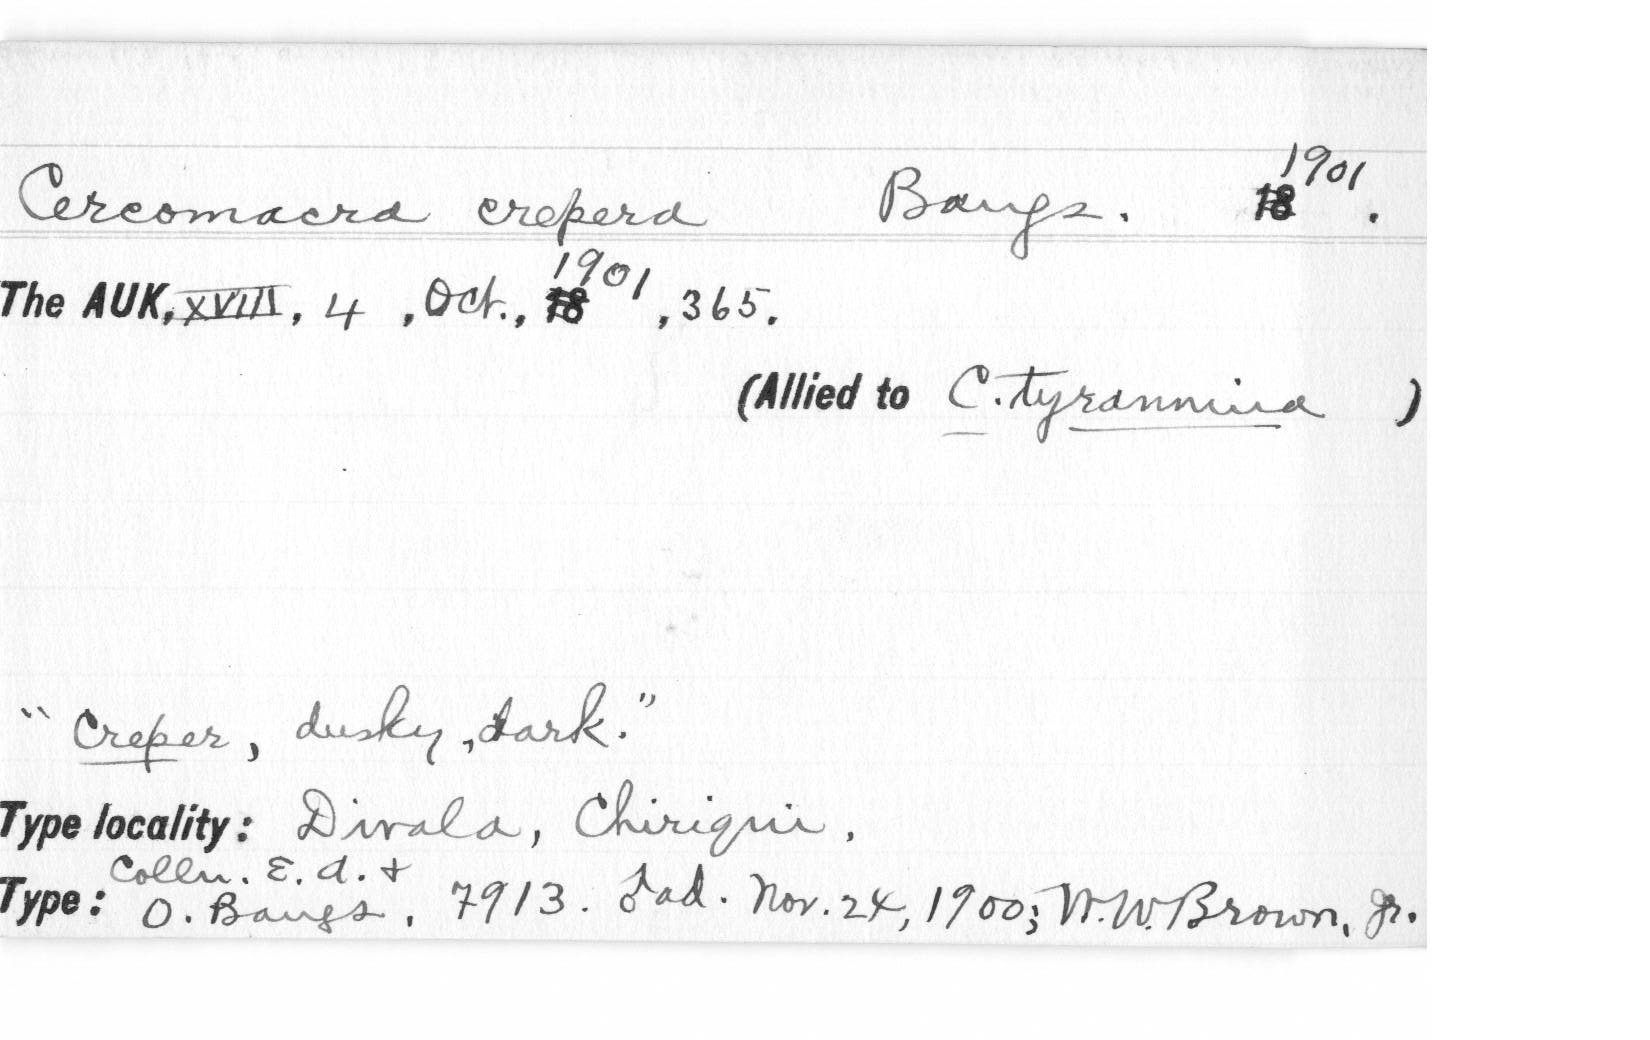 Cercomacra crepera Bangs. 1901.
The AUK, XVIII, 4, Oct., 1901, 365.
(Allied to C. tyrannina )
"Creper, dusky, dark."
Type locality: Divala, Chiriqui.
Type: Colln. E. A. +
O. Bangs, 7913. ♂ ad. Nov. 24, 1900; W. W. Brown, Jr.